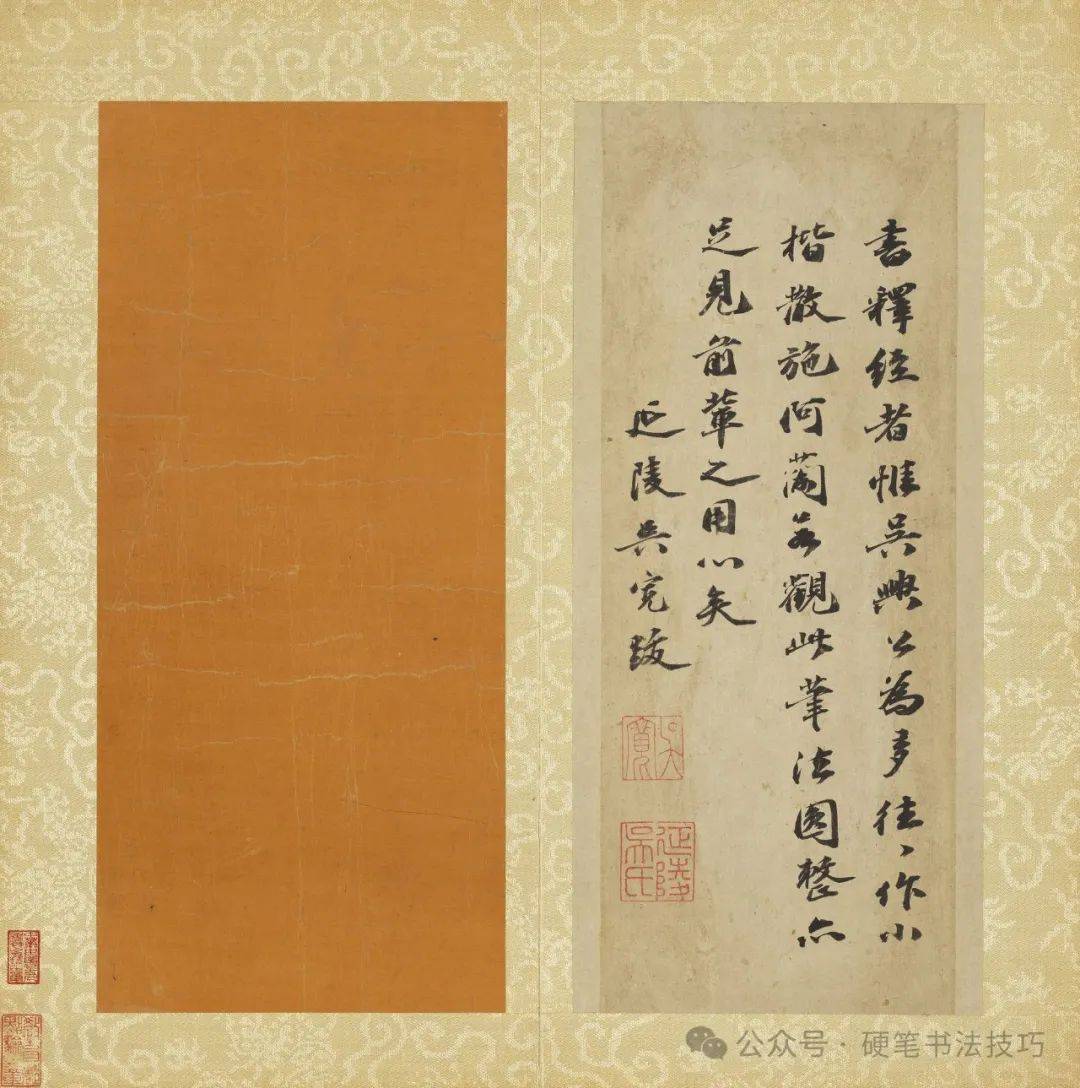 書釋經者惟吳興公為多往〻作小
楷散施何蘭若觀此筆法圓整亦
足見前輩之用心矣
延陵吳寬跋
吳寬
延陵吳氏
公众号 · 硬笔书法技巧